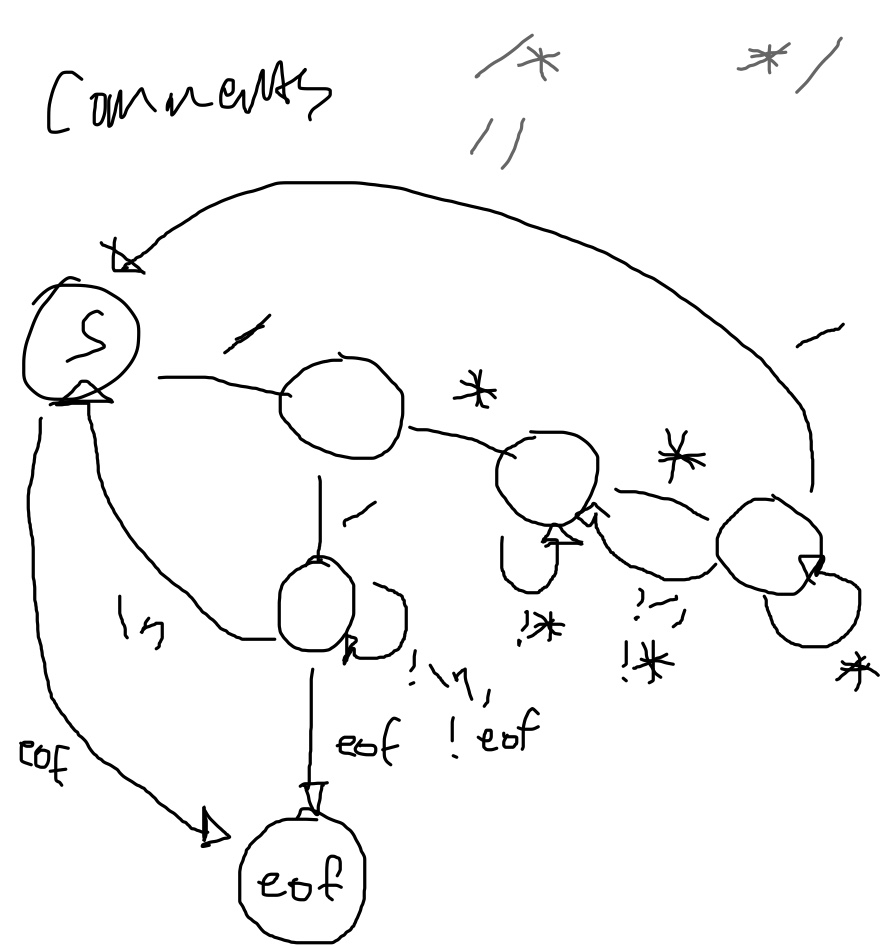 Comments
/* */
//
S
/
*
/
*
/
!*
!/,
!*
*
\n
!\n,
!eof
eof
eof
eof